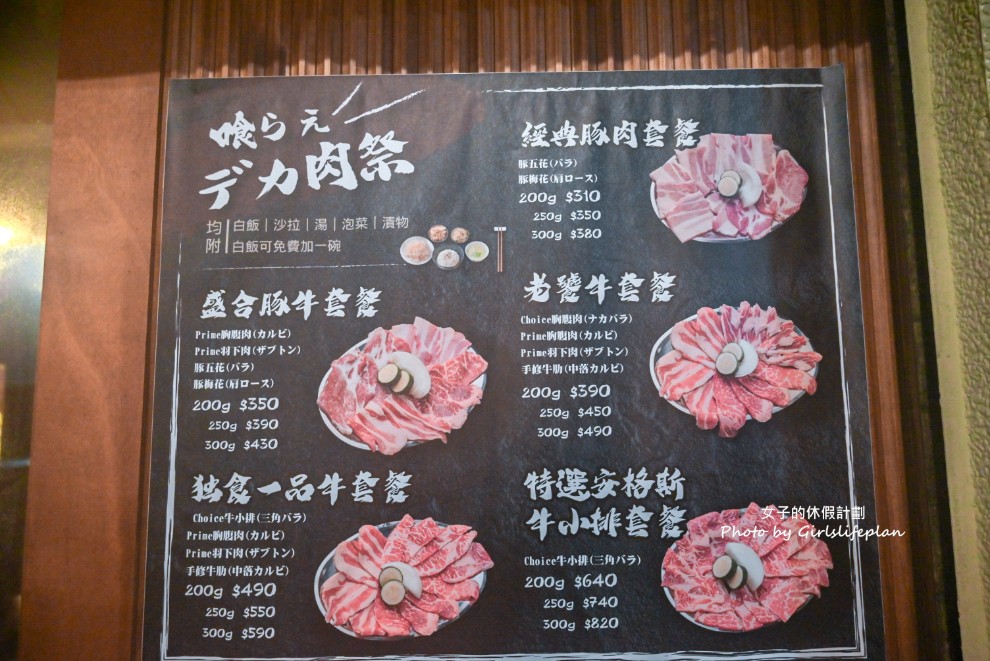 喰らえ
デカ肉祭
均附
白飯｜沙拉｜湯｜泡菜｜漬物
白飯可免費加一碗
盛合豚牛套餐
Prime胸腹肉(カルビ)
Prime羽下肉(ザブトン)
豚五花(バラ)
豚梅花(肩ロース)
200g $350
250g $390
300g $430
独食一品牛套餐
Choice牛小排(三角バラ)
Prime胸腹肉(カルビ)
Prime羽下肉(ザブトン)
手修牛肋(中落カルビ)
200g $490
250g $550
300g $590
經典豚肉套餐
豚五花(バラ)
豚梅花(肩ロース)
200g $310
250g $350
300g $380
老饕牛套餐
Choice胸腹肉(ナカバラ)
Prime胸腹肉(カルビ)
Prime羽下肉(ザブトン)
手修牛肋(中落カルビ)
200g $390
250g $450
300g $490
特選安格斯
牛小排套餐
Choice牛小排(三角バラ)
200g $640
250g $740
300g $820
女子的休假計劃
Photo by Girlslifeplan